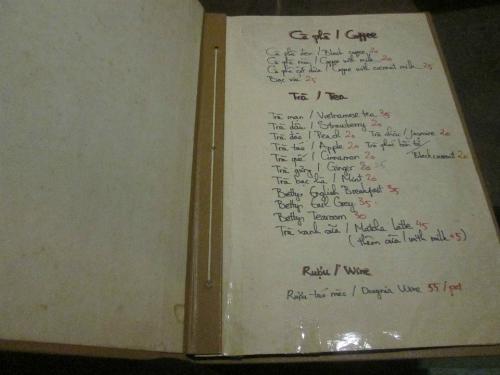 Cà phê / Coffee
Cà phê đen / Black coffee 20
Cà phê nâu / Coffee with milk 20
Cà phê cốt dừa / Coffee with coconut milk 25
Bạc xỉu 25
Trà / Tea
Trà mạn / Vietnamese tea 35
Trà dâu / Strawberry 20
Trà đào / Peach 20 Trà nhài / Jasmine 20
Trà táo / Apple 20 Trà phúc bồn tử /
Trà quế / Cinnamon 20 Blackcurrant 20
Trà gừng / Ginger 20
Trà bạc hà / Mint 20
Bettys English Breakfast 35
Bettys Earl Grey 35
Bettys Tearoom 30
Trà xanh sữa / Matcha Latte 45
(thêm sữa / with milk +5)
Rượu / Wine
Rượu táo mèo / Wine 55 /